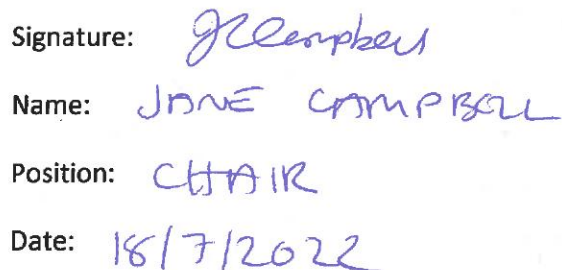 Signature: JCCampbell
Name: JANE CAMPBELL
Position: CHAIR
Date: 18/7/2022